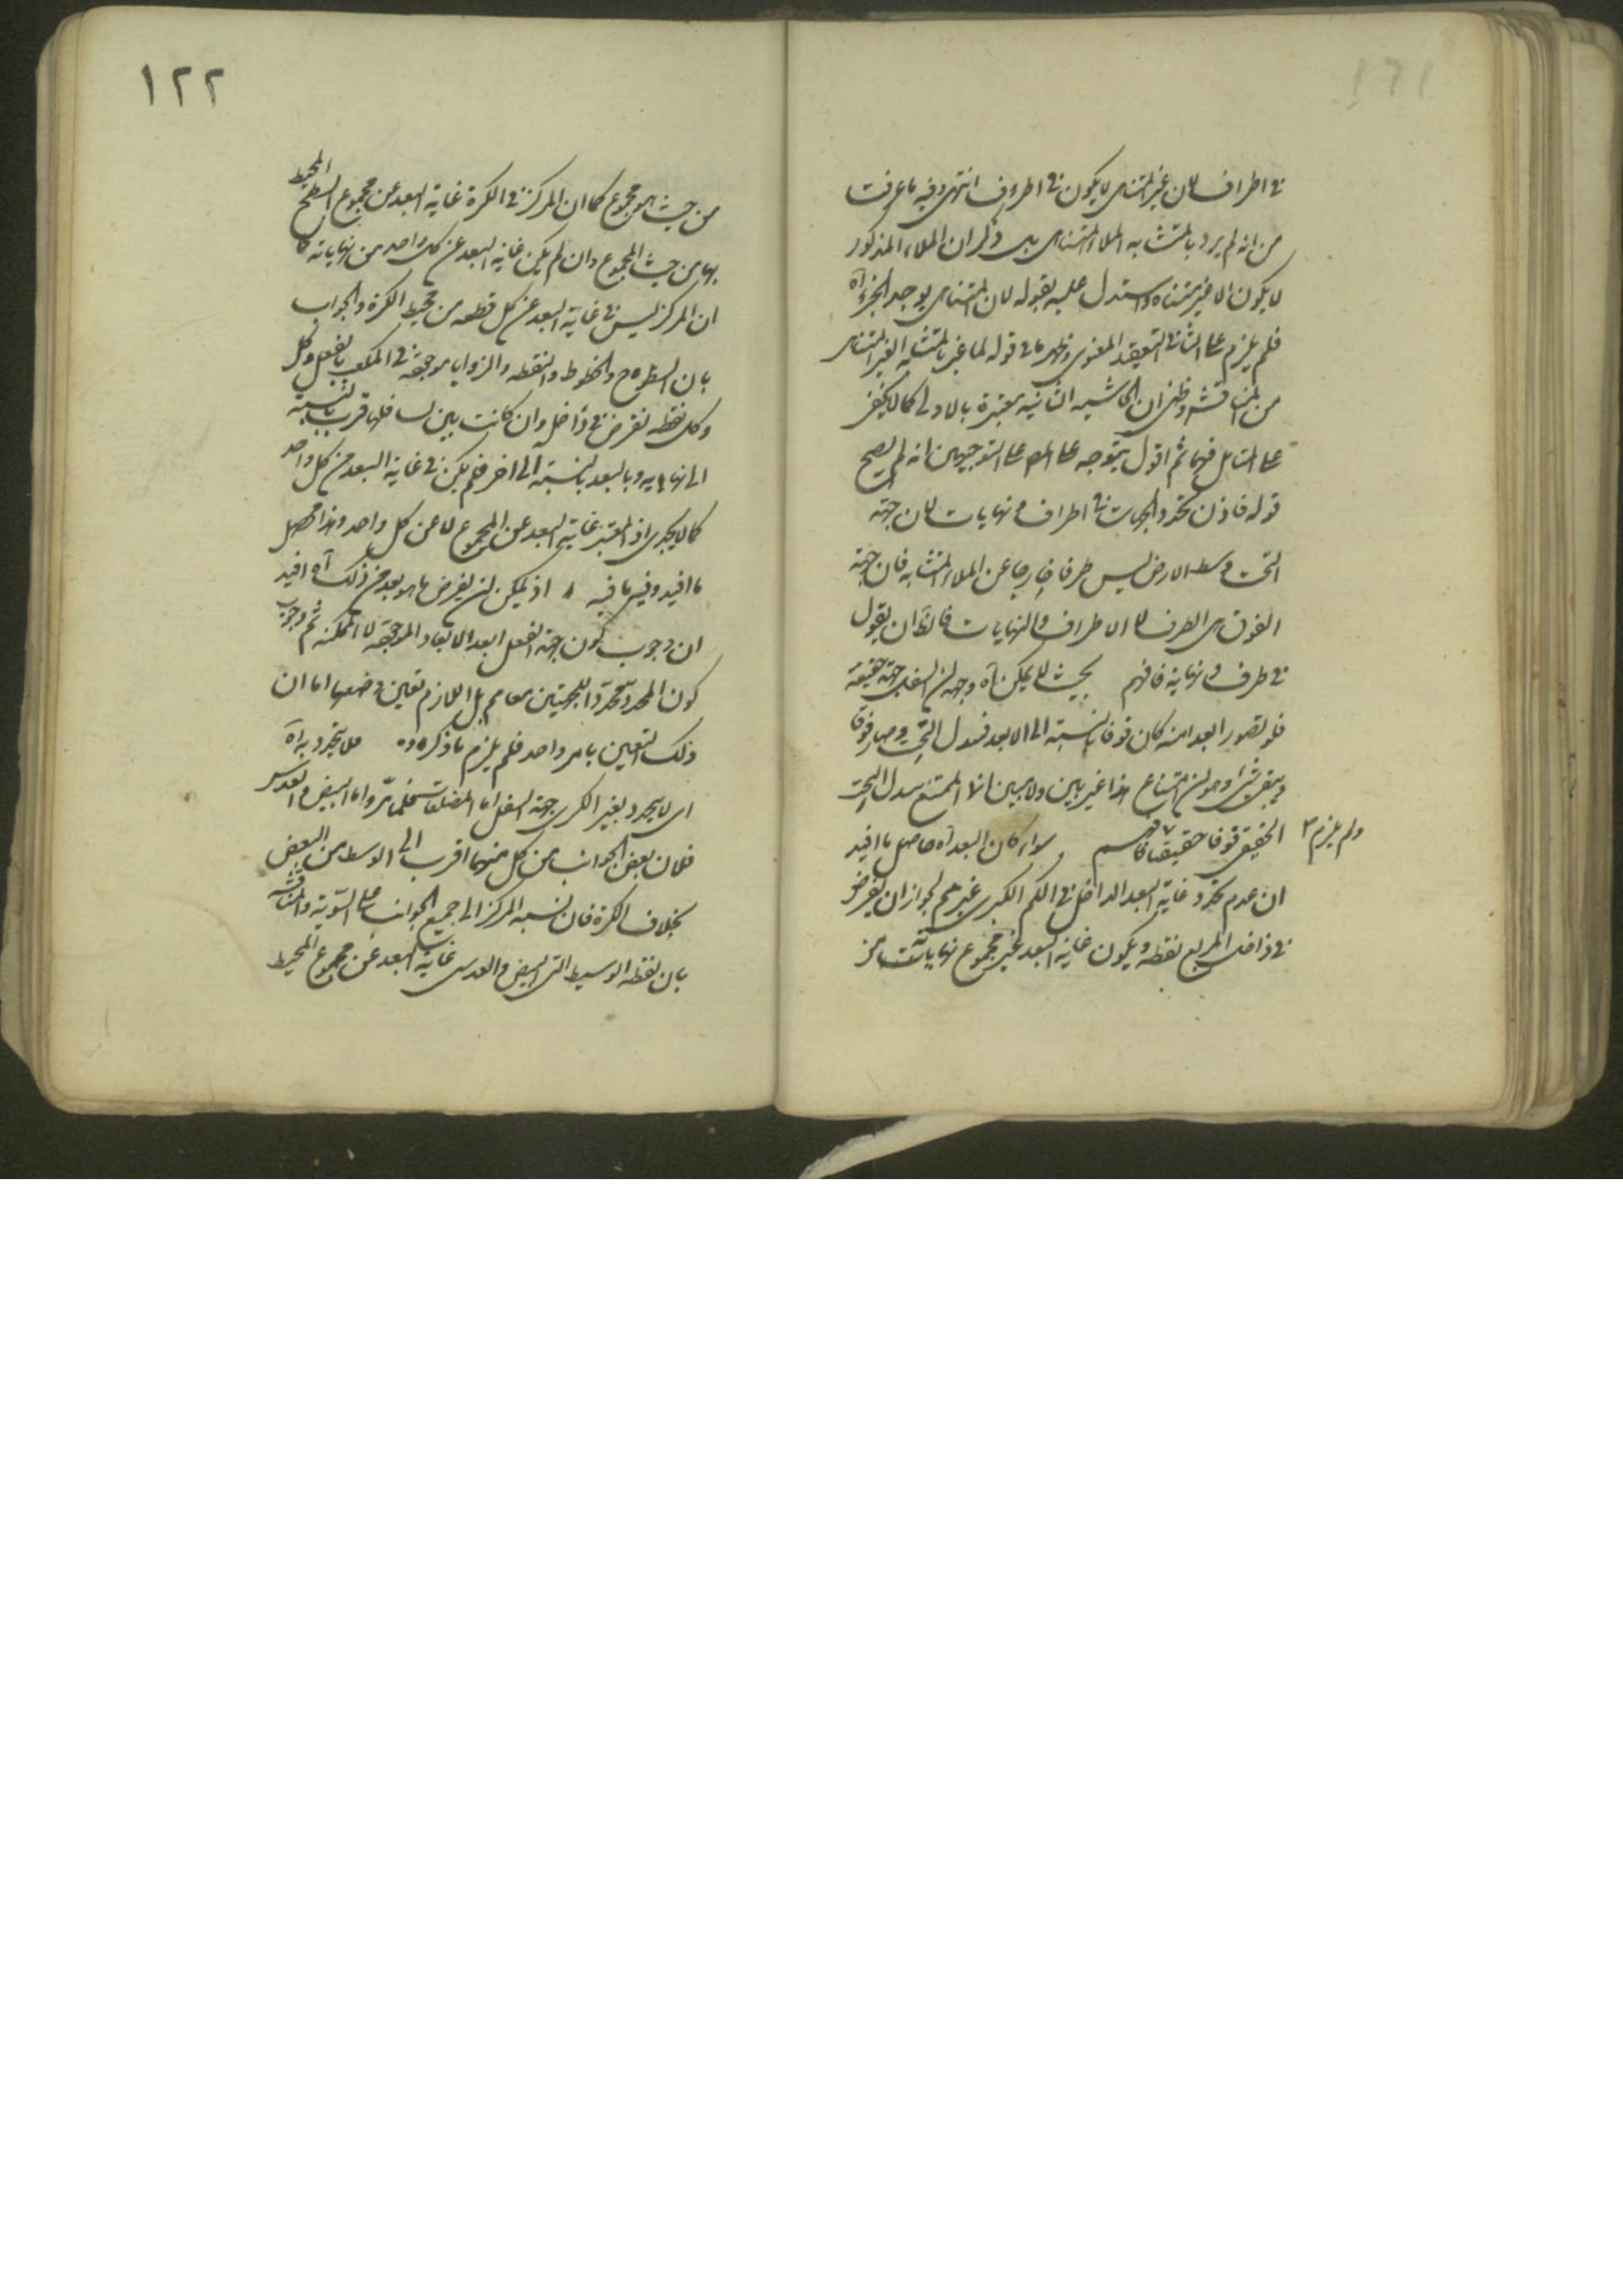 في اطراف لان غير المتناهي لا يكون في اطراف انتهى وفيه ما عرفت
من انه لم يرد بالمتشابه الملاء المتناهي بل ذكر ان الملاء المذكور
لا يكون الا غير متناه واستدل عليه بقوله لان المتناهي يوجد الجزء آه
فلم يلزم على الثاني التعقيد المعنوي وظهر ما في قوله لما غير بالمتشابه الغير المتناهي
من المناقشة وظني ان الحاشيه الثانيه معتبرة بالاولى كما لا يخفى
على المتأمل فيهما ثم اقول يتوجه على المص على التوجيهين انه لم يصح
قوله فاذن تحدد الجهات في اطراف ونهايات لان جهة
التحت وسط الارض ليس طرفا خارجا عن الملاء المتشابه فان جهة
الفوق هي الطرف لا الاطراف والنهايات فالظ ان يقول
في طرف ونهاية فافهم بحيث لا يمكن آه وجه ان السفل جهة حقيقة
فلو تصور ابعد منه كان فوقا بالنسبة الى الابعد فتبدل التحت وصار فوقا
وبقى شئ وهو ان امتناع هذا غير بين ولا مبين انما الممتنع تبدل التحت
الحقيقي فوقا حقيقيا فافهم سواء كان البعد آه حاصل ما افيد
ولم يلزم ٣
ان عدم تحدد غاية البعد الداخل في الكم الكبرى غير مم لجواز ان يفرض
في داخل المربع نقطة ويكون غاية البعد عن مجموع نهايات من
١٢٢
من حيث هو مجموع كما ان المركز في الكرة غاية البعد عن مجموع السطح المحيط
بها من حيث المجموع وان لم يكن غاية البعد عن كل واحد من نهاياته كما
ان المركز ليس في غاية البعد عن كل قطعه من محيط الكرة والجواب
بان السطوح والخطوط والنقطه والزوايا موجودة في المكعب بالفعل وكل
وكل نقطه تفرض في داخل وان كانت بين اسافلها قرب بالنسبة
الى نهايه وبالبعد بالنسبة الى اخر فلم يكن في غاية البعد من كل واحد
كما لا يجدي اذ المعتبر غاية البعد عن المجموع لا عن كل واحد وهذا محصل
ما افيد وفيه ما فيه اذ يمكن ان يفرض ما هو ابعد من ذلك آه افيد
ان وجوب كون جهة السفل ابعد الابعاد الموجودة لا الممكنه ثم وجوب
كون المحدد محددا للجهتين معا مم بل اللازم تعين وضعها اما ان
ذلك التعين بامر واحد فلم يلزم ما ذكره وه فلا يتحدد به آه
اي لا يتحدد بغير الكري جهة السفل اما المضلعات فلما مر واما البيضي والعدسي
فلان بعض الجوانب من كل منهما اقرب الى الوسط من البعض
بخلاف الكرة فان نسبه المركز الى جميع الجوانب على السوية والمناقشة
بان نقطه الوسيط التي البيضي والعدسي غاية البعد عن مجموع المحيط